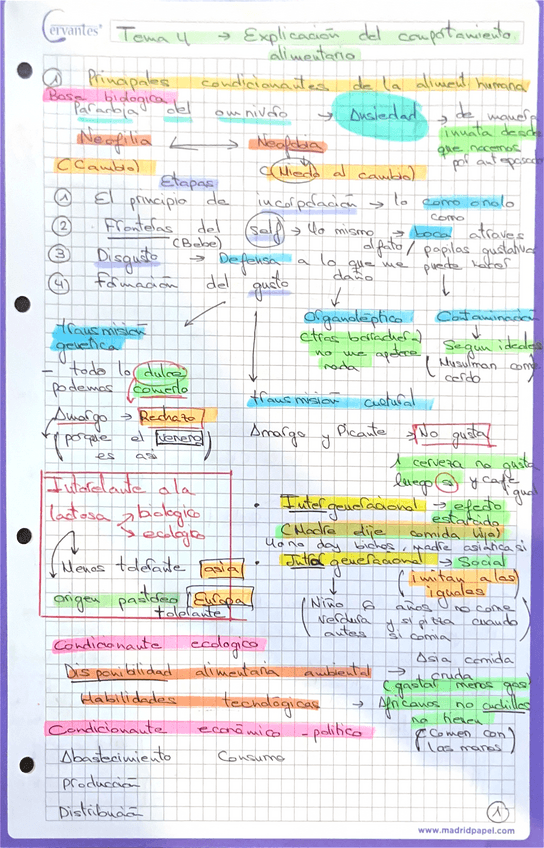 Cervantes
Tema 4 → Explicación del comportamiento
alimentario
① Principales condicionantes de la aliment. humana
Base biologica
Paradoja del omnivoro → Ansiedad → de manera
innata desde
que nacemos
por antepasados
Neofilia ↔ Neofobia
(Cambio) (Miedo al cambio)
Etapas
① El principio de incorporación → lo como o no lo
como
② Fronteras del self → Yo mismo → boca atraves
(Bebe) olfato / papilas gustativas
③ Disgusto → Defensa a lo que me puede hacer
daño
④ Formación del gusto
Organoléptico Contaminación
(tras borrachera)
no me apetece
nada
Segun ideales
(Musulman come
cerdo
transmision
genetica
- todo lo dulce
podemos comerlo
Amargo → Rechazo
(porque el veneno)
es asi
transmisión cultural
Amargo y Picante → No gusta
1 cerveza no gusta
luego si y café
igual
Intorelante a la
lactosa → biologico
→ ecologico
Menos tolerante asia
origen pastoreo Europa
tolerante
• Intergeneracional → efecto
(Madre dije comida hijo)
Yo no doy bichos, madre asiatica si
• Intrageneracional → Social
(imitan a las
iguales)
(Niño 6 años no come
verdura y si pitia cuando
antes si comia)
Condicionante ecologico
Disponibilidad alimentaria ambiental → Asia comida
cruda
(gastar menos gas)
Habilidades tecnologicas → Africanos no cuchillos
no tienen
(Comen con
las manos)
Condicionante económico - politico
Abastecimiento Consumo
Producción
Distribución
①
www.madridpapel.com